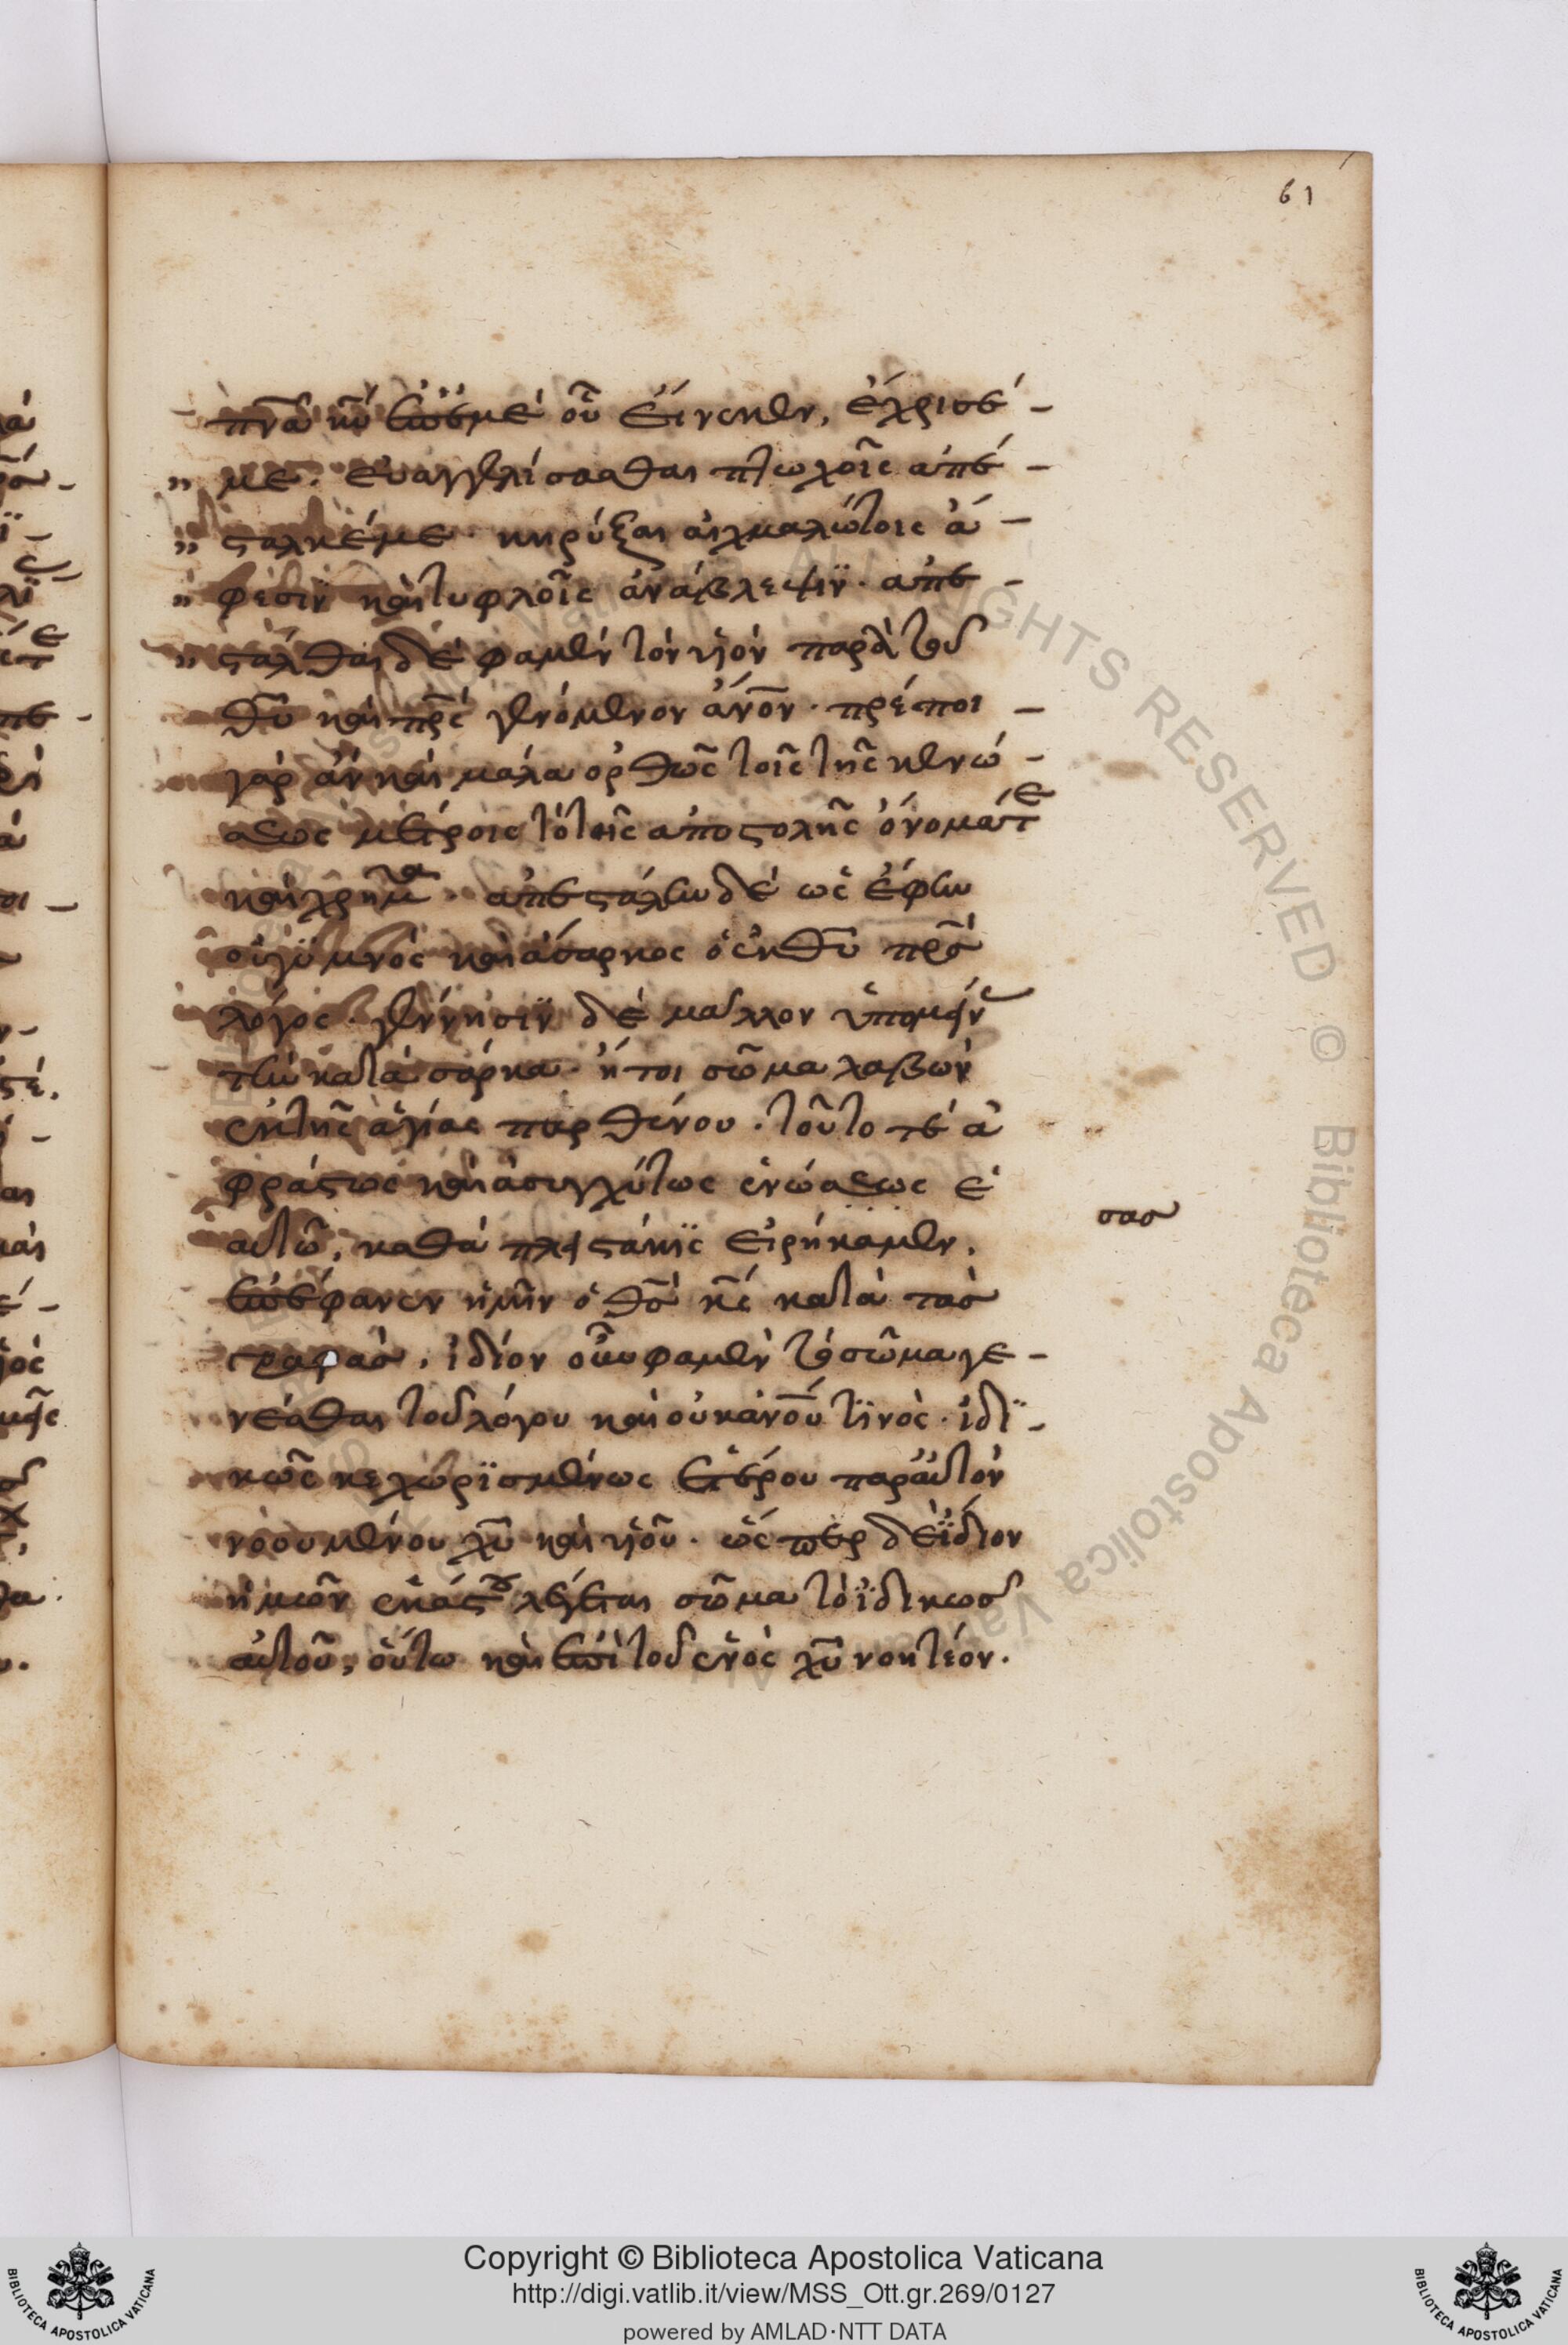 61
πνα κυ ἐπ' ἐμὲ οὗ εἵνεκεν, ἔχρισέ -
" με. εὐαγγελίσασθαι πτωχοῖς ἀπέ -
" σταλκέ με· κηρύξαι αἰχμαλώτοις ἄ -
" φεσιν καὶ τυφλοῖς ἀνάβλεψιν· ἀπε -
" στάλθαι δέ φαμεν τὸν υἱὸν παρὰ τοῦ
θυ καὶ πρς γενόμενον ἄνον· πρέποι -
γὰρ ἂν καὶ μάλα ορθῶς τοῖς τῆς κενώ -
σεως μέτροις τὸ τῆς ἀποστολῆς ὄνομά τε
καὶ χρῆμα· ἀπεστάλη δὲ ὡς ἔφην
οὐ γυμνὸς καὶ ἄσαρκος ὁ ἐκ θυ πρς
λόγος· γέννησιν δὲ μᾶλλον ὑπομείνας
τὴν κατὰ σάρκα· ἤτοι σῶμα λαβὼν
ἐκ τῆς ἁγίας παρθένου· τοῦτό τε ἀ
φράστως καὶ ἀσυγχύτως ἑνώσεως ἑ
αυτῷ, καθὰ πλειστάκις εἰρήκαμεν,
σασ
ἐπέφανεν ἡμῖν ὁ θς κς κατὰ τὰς
γραφάς, ἴδιον οὖν φαμεν τὸ σῶμα γε -
νέσθαι τοῦ λόγου καὶ οὐκ ἄνου τινὸς· ἰδι -
κῶς κεχωρισμένως ἑτέρου παρ' αὐτὸν
νοουμένου χυ καὶ υἱοῦ· ὥσπερ δὲ ἴδιον
ἡμῶν ἑκάστου λέγεται σῶμα τὸ ἰδικῶς
αὐτοῦ, οὕτω καὶ ἐπὶ τοῦ ἑνὸς χυ νοητέον.
ALL RIGHTS RESERVED © Biblioteca Apostolica Vaticana
Copyright © Biblioteca Apostolica Vaticana
http://digi.vatlib.it/view/MSS_Ott.gr.269/0127
powered by AMLAD·NTT DATA
BIBLIOTECA APOSTOLICA VATICANA
BIBLIOTECA APOSTOLICA VATICANA